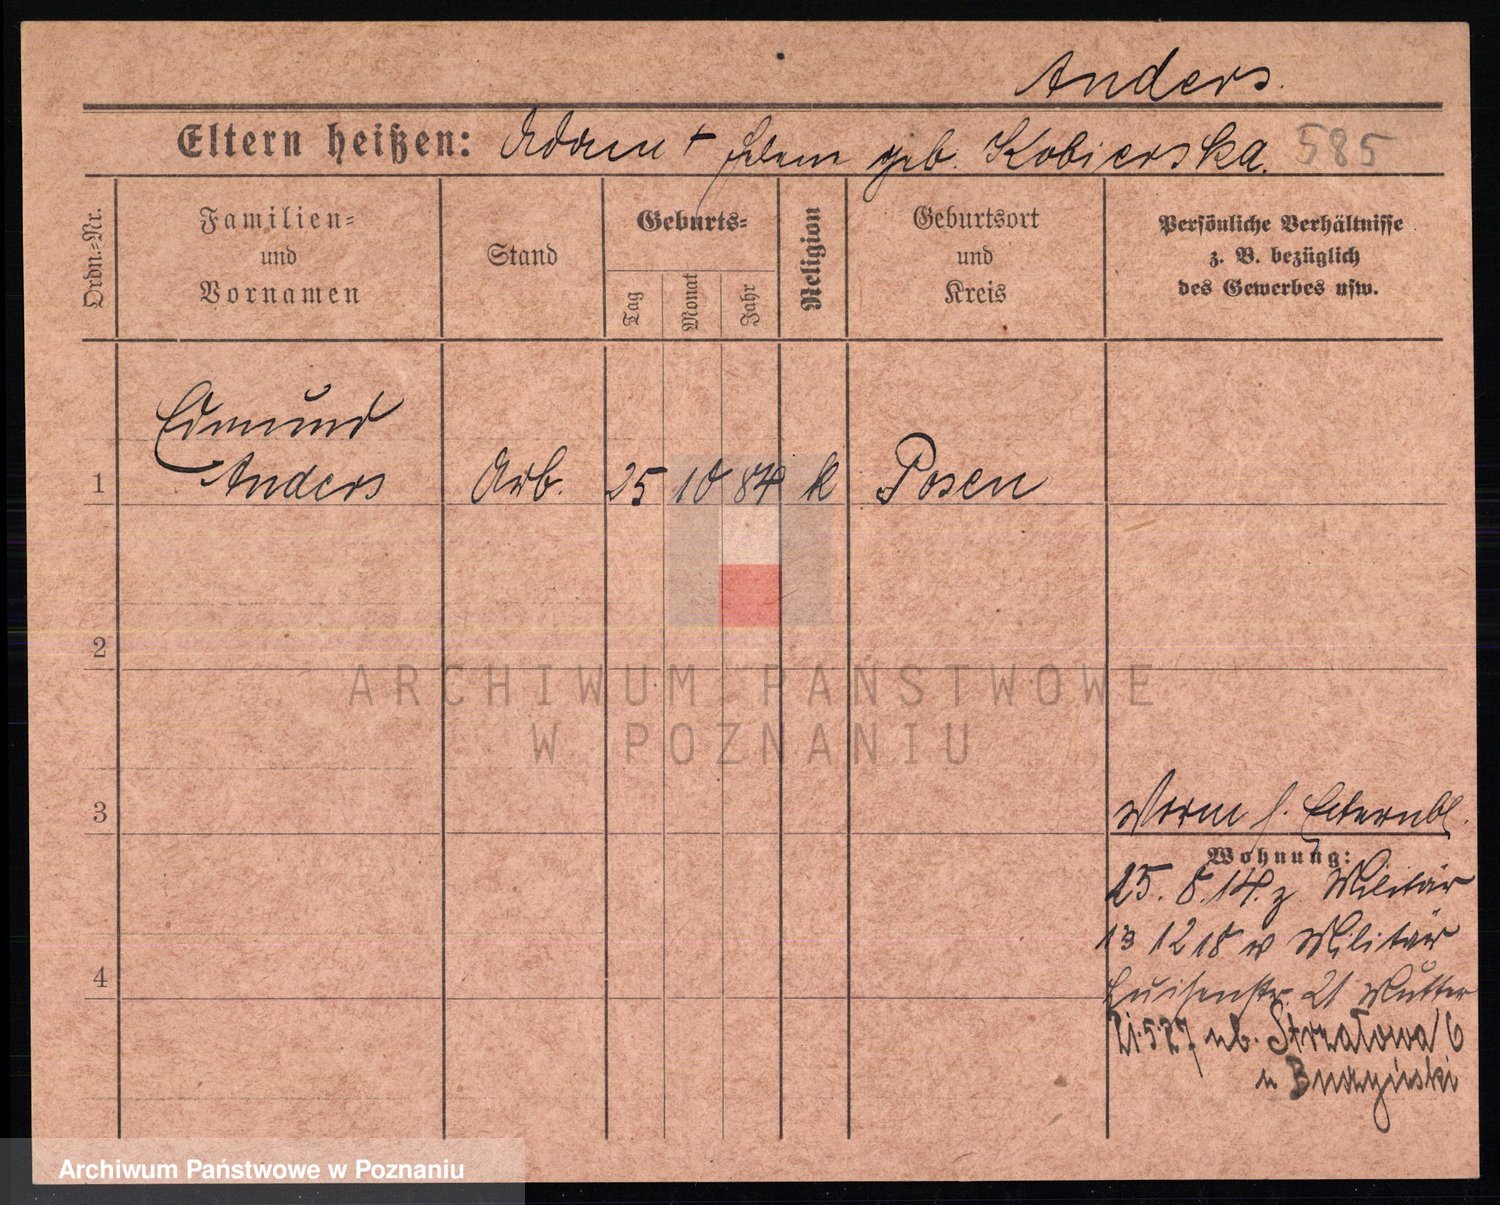 Anders.
Eltern heißen: Adam + Helene geb. Kobierska. 585
Ordn.=Nr.
Familien=
und
Vornamen
Stand
Geburts=
Tag
Monat
Jahr
Religion
Geburtsort
und
Kreis
Persönliche Verhältnisse
z. B. bezüglich
des Gewerbes usw.
Edmund
1 Anders Arb. 25 10 84 k Posen
2
ARCHIWUM PAŃSTWOWE
W POZNANIU
3
Elternbl.
Wohnung:
25. 8. 14. z. Militär
13 12 18 v Militär
4
Luisenstr. 21 Mutter
21.5.27 ub. Strzałowa 6
u
Archiwum Państwowe w Poznaniu